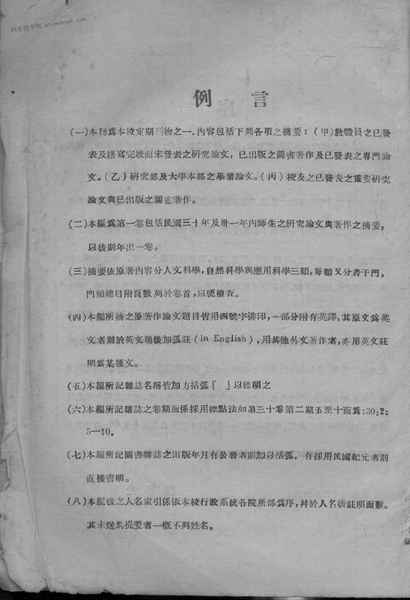 例言
(一)本刊為本校定期刊物之一,內容包括下列各項之摘要:(甲)教職員之已發
表及繕寫完竣而未發表之研究論文,已出版之圖書著作及已發表之專門論
文。(乙)研究部及大學本部之畢業論文。(丙)校友之已發表之重要研究
論文與已出版之圖書著作。
(二)本編為第一卷包括民國三十年及卅一年內師生之研究論文與著作之摘要,
以後則年出一卷。
(三)摘要依原著內容分人文科學,自然科學與應用科學三類,每類又分若干門,
門類總目附頁數列於卷首,以便檢查。
(四)本編所摘之原著作論文題目皆用四號字排印,一部分附有英譯,其原文為英
文者則於英文題後加弧註(in English),用其他外文著作者,亦用英文註
明為某種文。
(五)本編所記雜誌名稱皆加方括弧〔 〕以誌明之
(六)本編所記雜誌之卷期頁係採用標點法如第三十卷第二期五至十面為:30:2:
5—10.
(七)本編所記圖書雜誌之出版年月有公曆者則加以括弧,有採用民國紀元者則
直接書明。
(八)本編後之人名索引係依本校行政系統各院所部為序,幷於人名後註明面數。
其未送來提要者一概不列姓名。